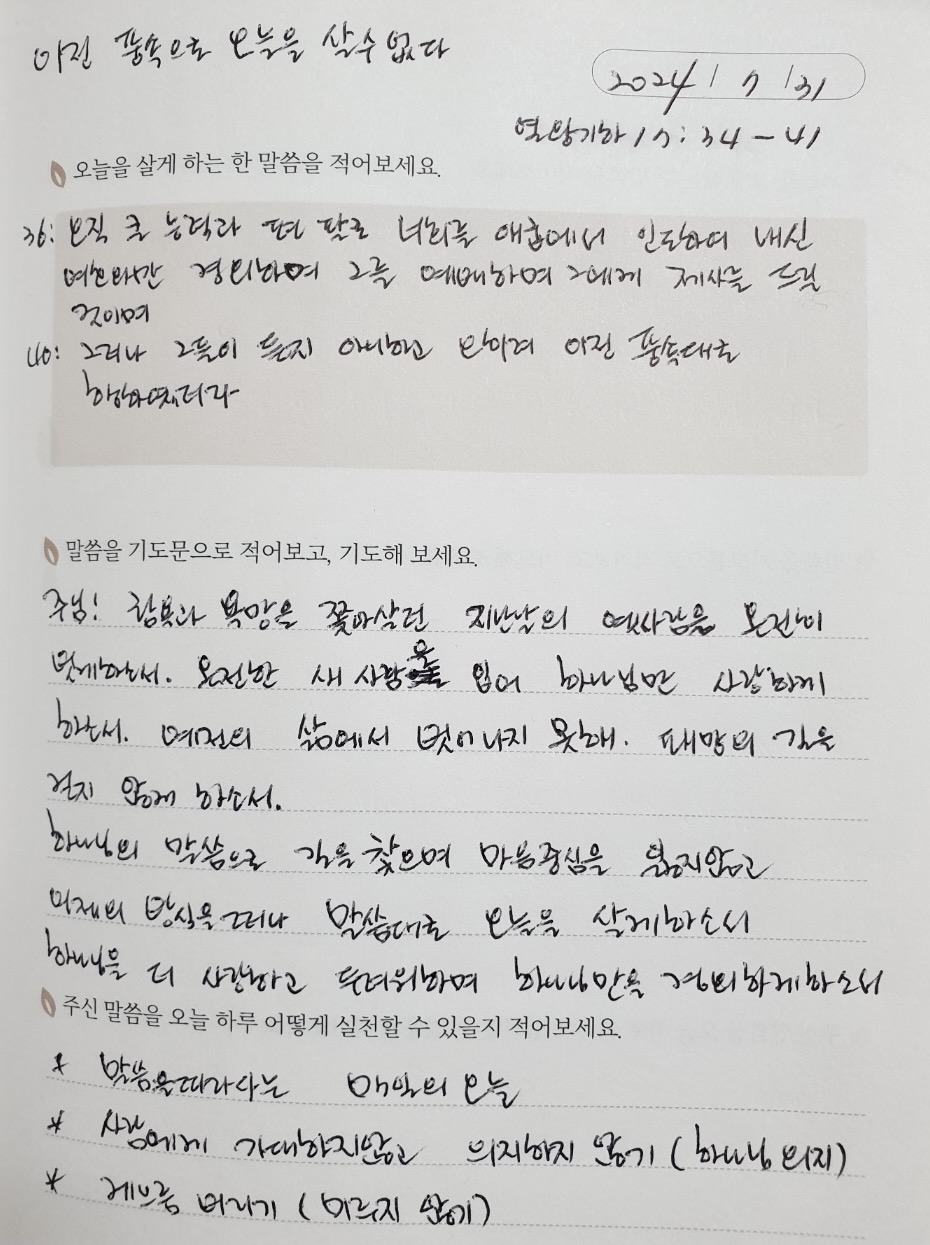 이전 풍속으로 오늘을 살 수 없다
2024 / 7 / 31
열왕기하 17:34-41
오늘을 살게 하는 한 말씀을 적어보세요.
36: 오직 큰 능력과 편 팔로 너희를 애굽에서 인도하여 내신
여호와만 경외하며 그를 예배하며 그에게 제사를 드릴
것이며
40: 그러나 그들이 듣지 아니하고 오히려 이전 풍속대로
행하였더라
말씀을 기도문으로 적어보고, 기도해 보세요.
주님! 탐욕과 욕망을 쫓아살던 지난날의 옛사람을 온전히
벗게하소서. 온전한 새 사람을 입어 하나님만 사랑하게
하소서. 예전의 삶에서 벗어나지 못해. 패망의 길을
걷지 않게 하소서.
하나님의 말씀으로 길을 찾으며 마음중심을 잃지않고
어제의 방식을 떠나 말씀대로 오늘을 살게하소서
하나님을 더 사랑하고 두려워하며 하나님만을 경외하게하소서
주신 말씀을 오늘 하루 어떻게 실천할 수 있을지 적어보세요.
* 말씀을따라사는 매일의 오늘
* 사람에게 기대하지않고 의지하지 않기 (하나님 의지)
* 게으름 버리기 (미루지 않기)